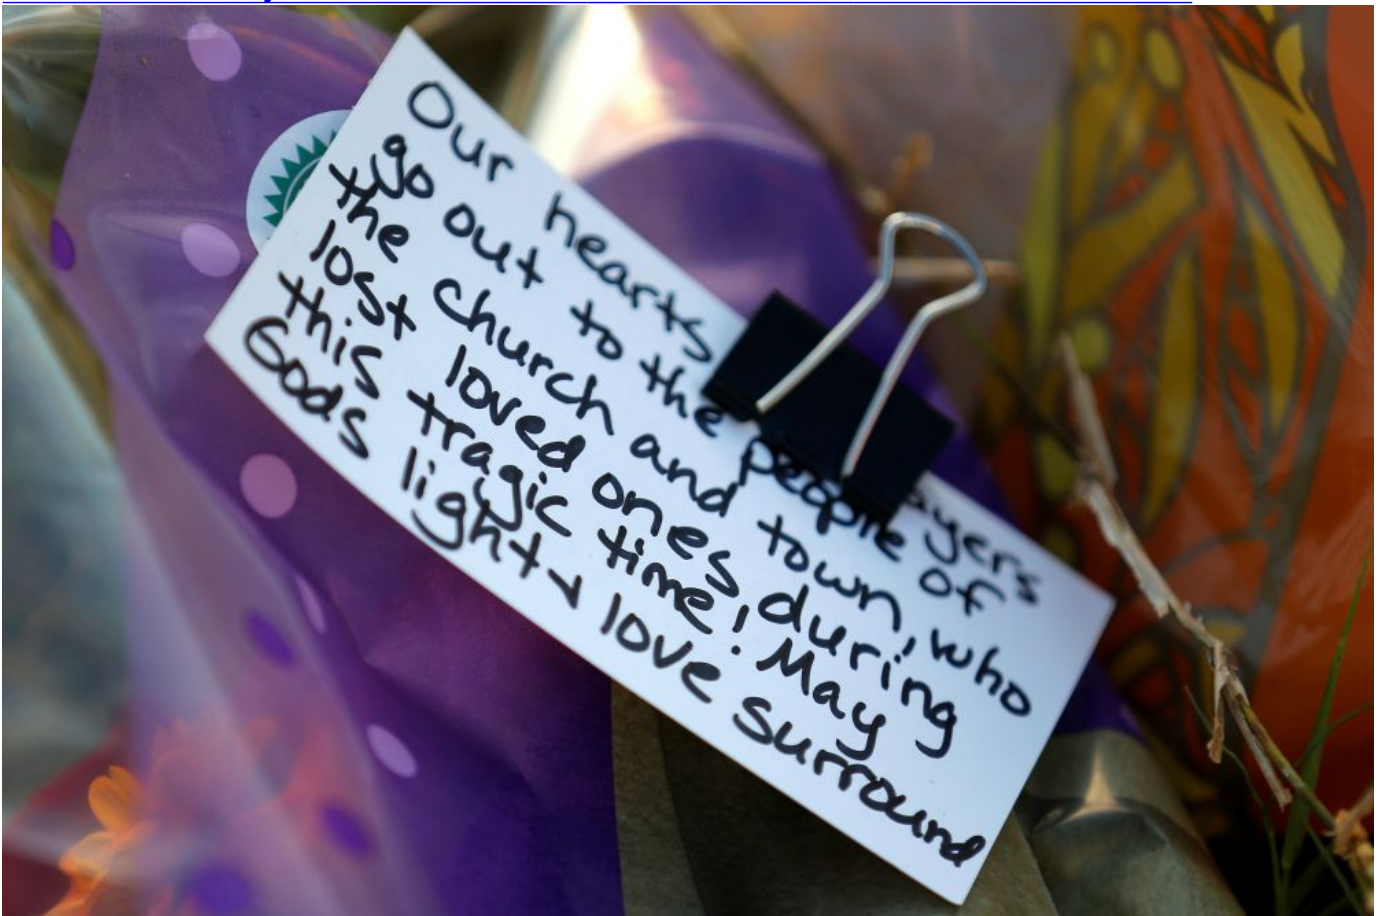 Our hearts ayers
go out to the people of
the church and town, who
lost loved ones, during
this tragic time! May
Gods light & love surround